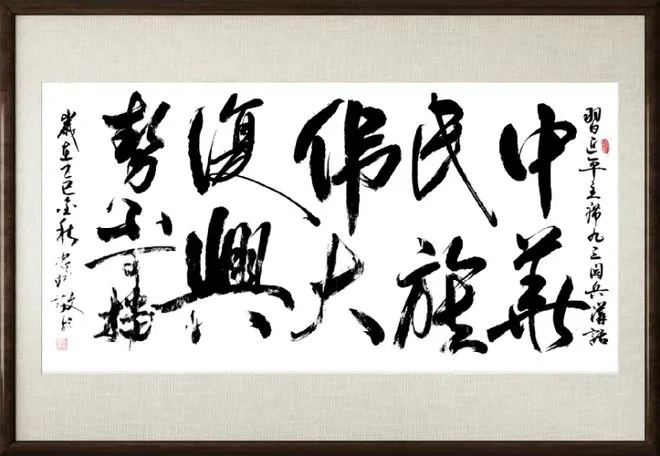 習近平主席九三阅兵講話
中華
民族
伟大
復興
勢不可擋
歲在乙巳金秋
敬书